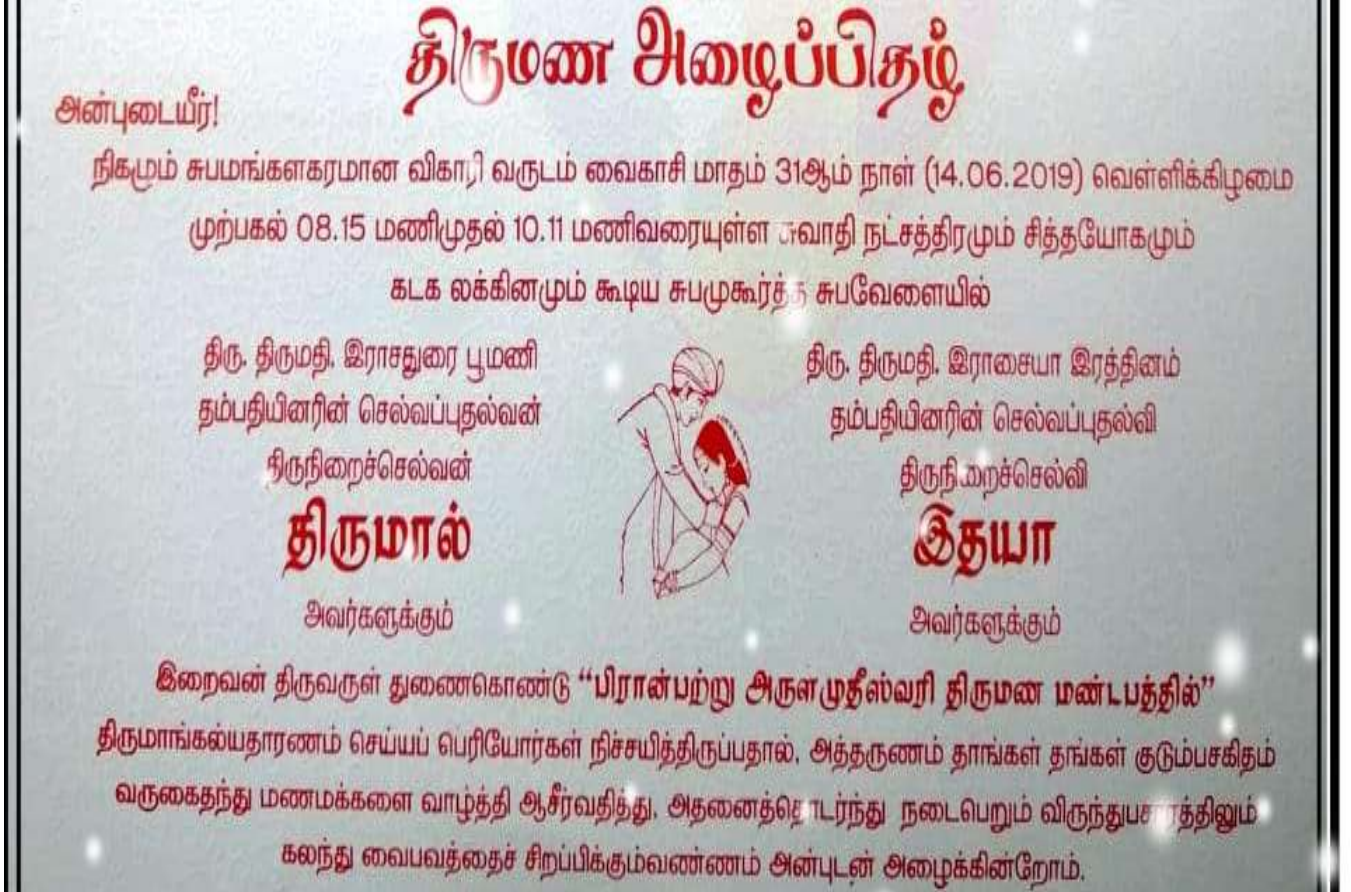 திருமண அழைப்பிதழ்
அன்புடையீர்!
நிகழும் சுபமங்களகரமான விகாரி வருடம் வைகாசி மாதம் 31ஆம் நாள் (14.06.2019) வெள்ளிக்கிழமை
முற்பகல் 08.15 மணிமுதல் 10.11 மணிவரையுள்ள சுவாதி நட்சத்திரமும் சித்தயோகமும்
கடக லக்கினமும் கூடிய சுபமுகூர்த்த சுபவேளையில்
திரு. திருமதி. இராசதுரை பூமணி
தம்பதியினரின் செல்வப்புதல்வன்
திருநிறைச்செல்வன்
திருமால்
அவர்களுக்கும்
திரு. திருமதி. இராசையா இரத்தினம்
தம்பதியினரின் செல்வப்புதல்வி
திருநிறைச்செல்வி
இதயா
அவர்களுக்கும்
இறைவன் திருவருள் துணைகொண்டு “பிரான்பற்று அருளமுதீஸ்வரி திருமண மண்டபத்தில்”
திருமாங்கல்யதாரணம் செய்யப் பெரியோர்கள் நிச்சயித்திருப்பதால், அத்தருணம் தாங்கள் தங்கள் குடும்பசகிதம்
வருகைதந்து மணமக்களை வாழ்த்தி ஆசீர்வதித்து, அதனைத்தொடர்ந்து நடைபெறும் விருந்துபசாரத்திலும்
கலந்து வைபவத்தைச் சிறப்பிக்கும்வண்ணம் அன்புடன் அழைக்கின்றோம்.